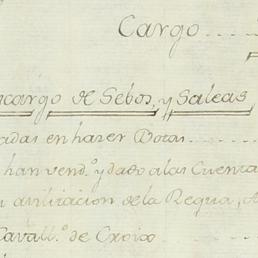 Cargo
cargo de Sebos, y Saleas
adas en hazer Botas
han vend.º y dado a las Cuenta
n avilitacion de la Requa, A
Cavall.º de Croix